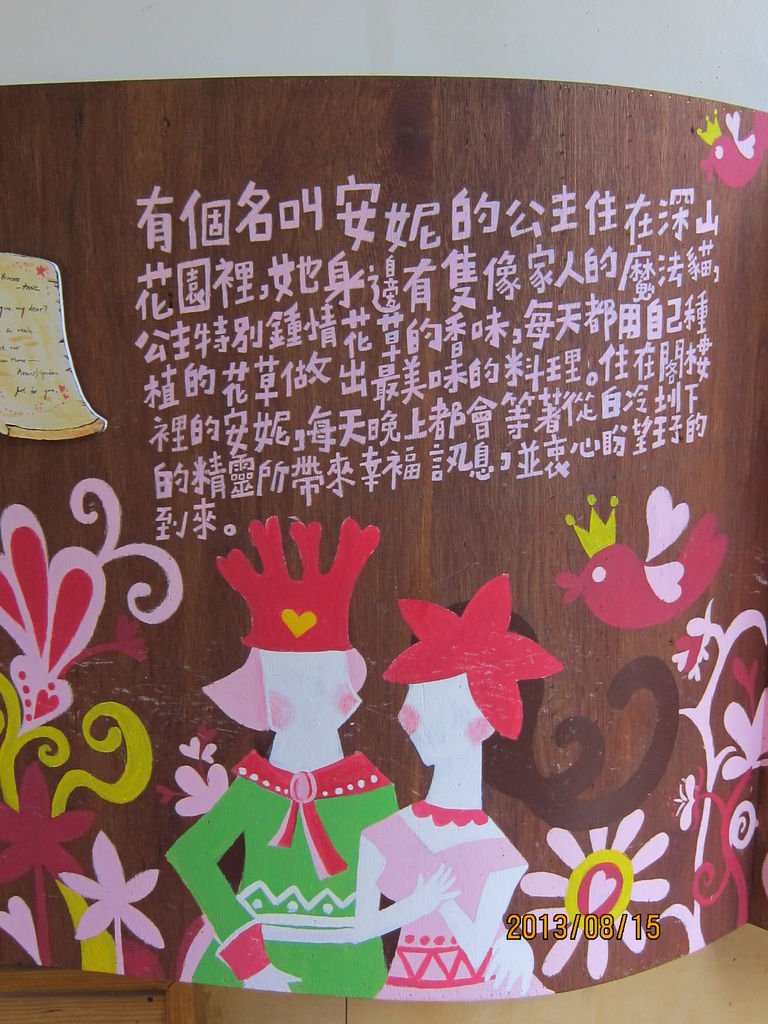 有個名叫安妮的公主住在深山
花園裡,她身邊有隻像家人的魔法貓,
公主特別鍾情花草的香味,每天都用自己種
植的花草做出最美味的料理。住在閣樓
裡的安妮,每天晚上都會等著從白冷圳下
的精靈所帶來幸福訊息,並衷心盼望王子的
到來。
2013/08/15